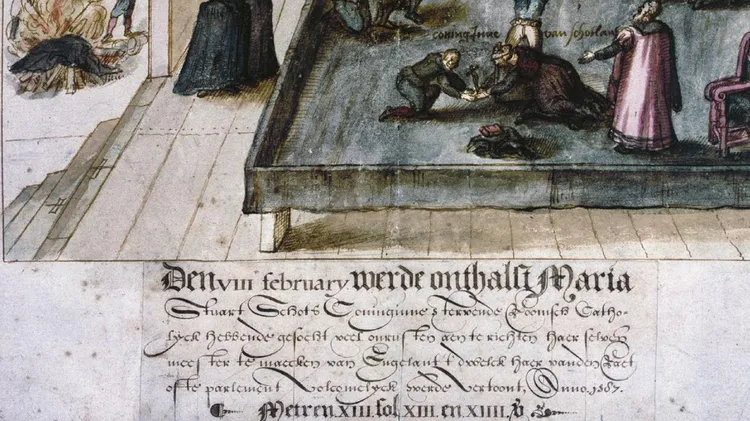 coninginne van schotlan
Den VIII february werde onthalst Maria
Stuart Schots Coninginne stervende Roomsch Catho-
lyck hebbende gesocht veel onrusten aen te richten haer selven
meester te maecken van Engelant t'dwelck haer van den Raet
ofte parlement volcomelyck werde vertoont, Anno. 1587.
Metren. XIII. fol. XIII. en XIIII.